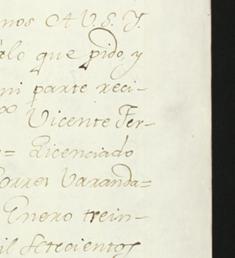 nos A V. S. Y.
alo que pido, y
mi parte reci-
Vicente Fer-
= Licenciado
Torres Varanda=
Enero trein-
il Setecientos